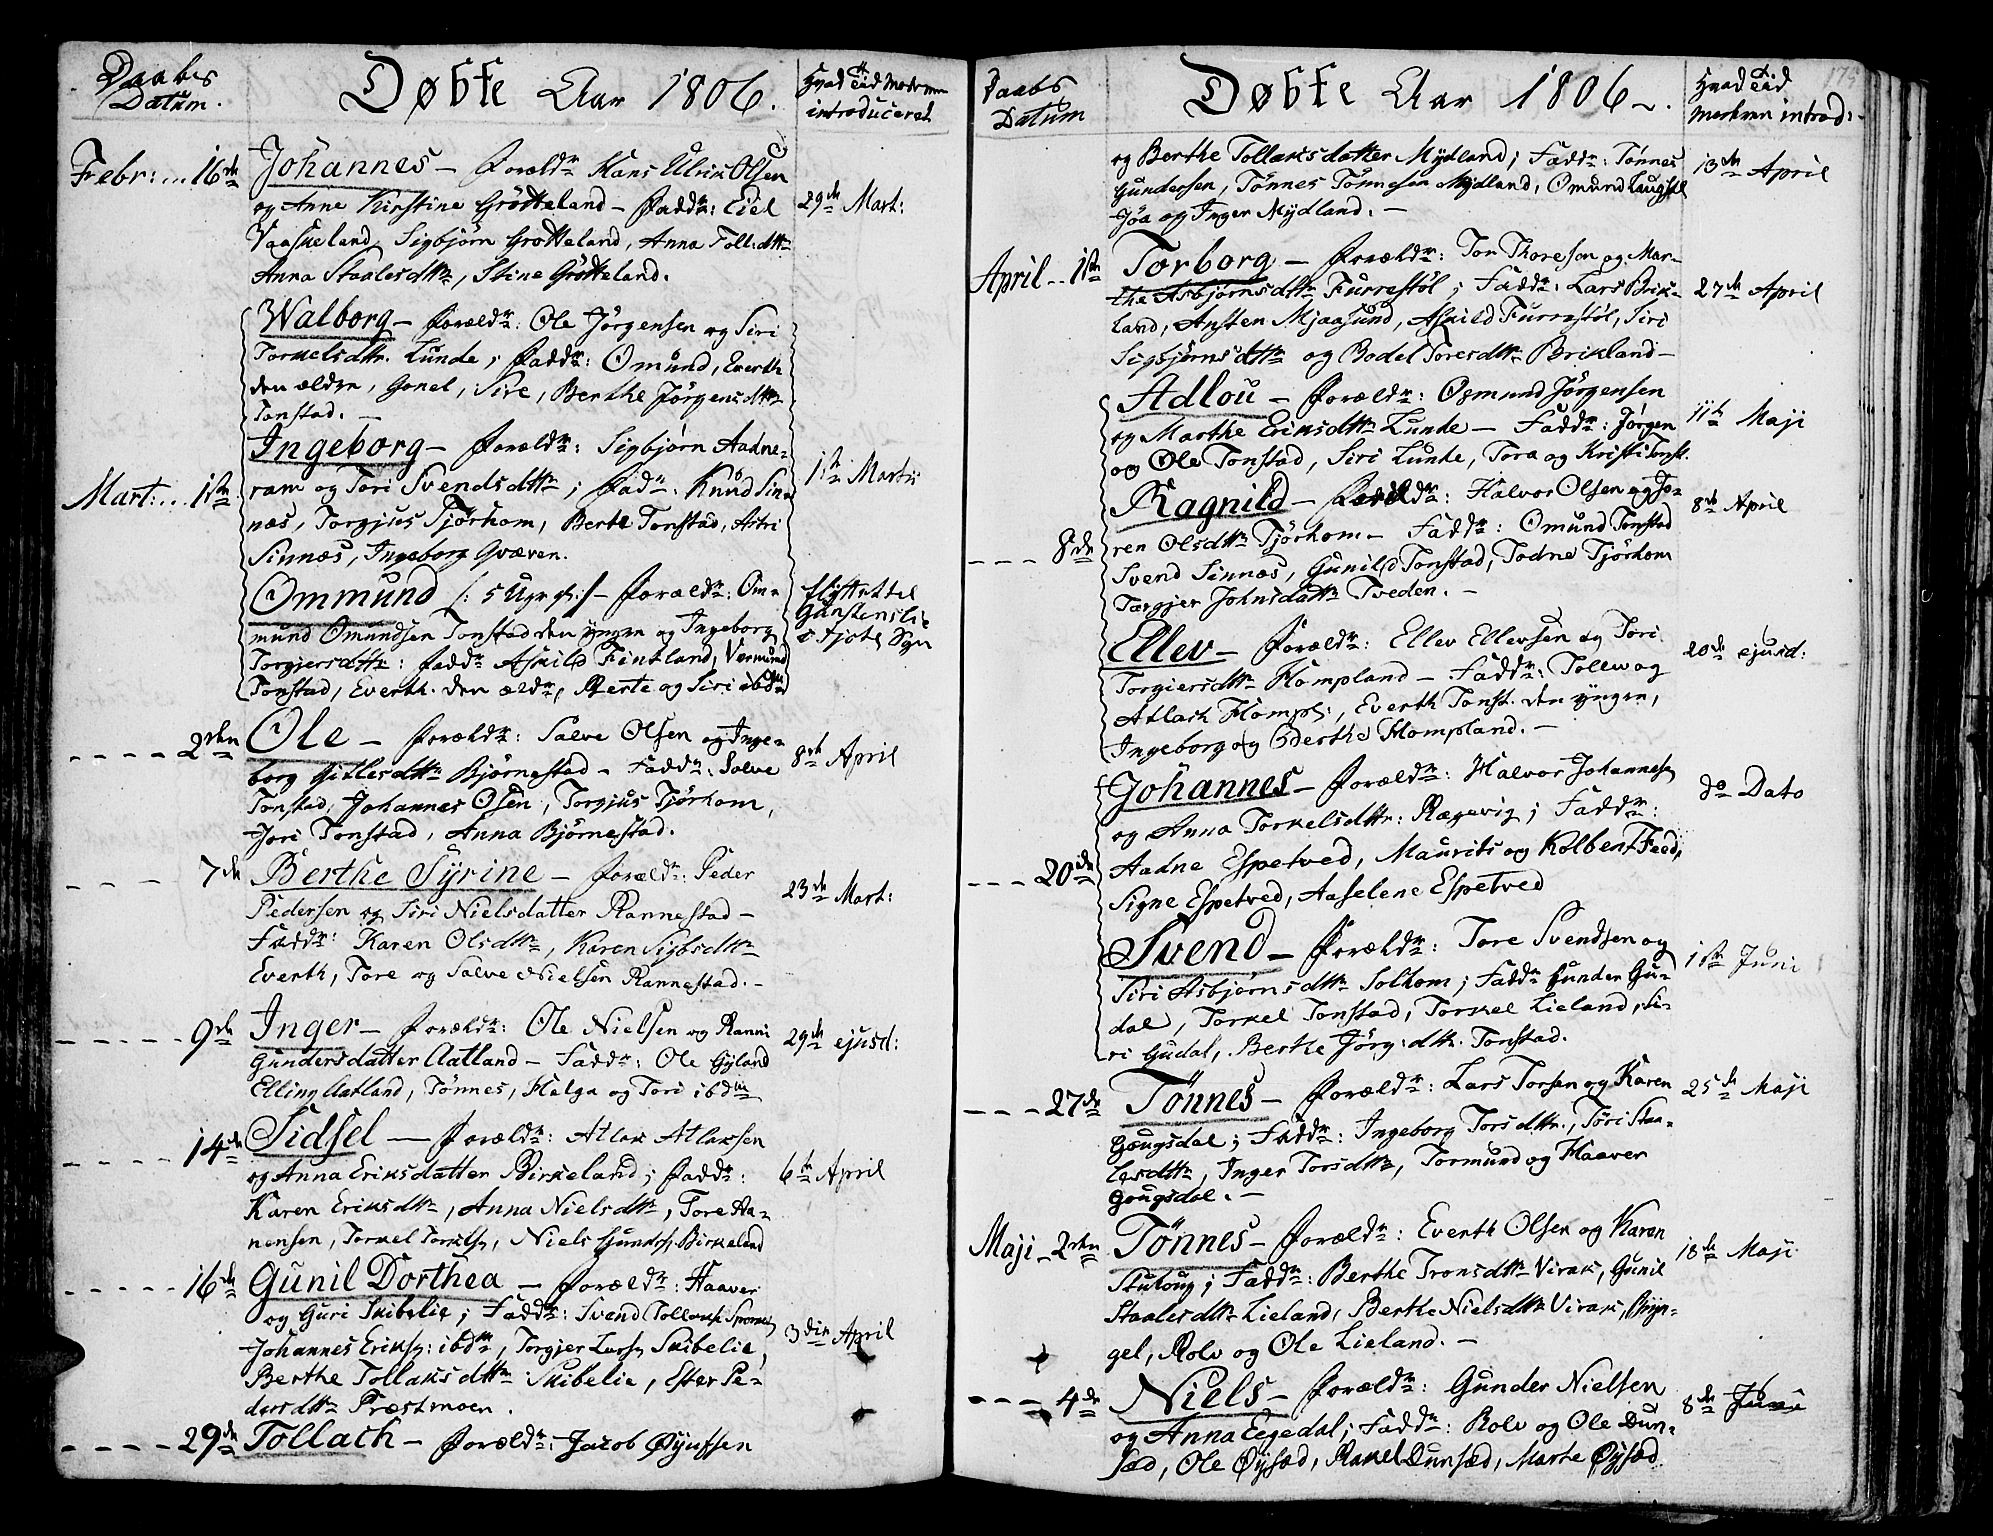 Daabes
Datum.
Døbte Aar 1806.
Hvad Tid Moderen
introduceret
Febr: ... 16de
Johannes – Foræld: Hans Ulrik Olsen
og Anne Kirstine Grötteland – Fadd: Eiel
Vaaskeland, Sigbjörn Grötteland, Anna Toll:dttr
Anna Staalesdttr, Stine Grötteland.
29de Mart:
Walborg – Foræld: Ole Jörgensen og Siri
Torkelsdttr. Lunde; Fadd: Omund, Everth
den ældre, Gonel, Sire, Berthe Jörgensdttr
Tonstad. –
Mart: ... 1ste
Ingeborg – Foræld: Sigbjørn Aadne-
ram og Tori Svendsdttr; Fad: Knud Sin-
næs, Torgjus Tjörhom, Berte Tonstad, Astri
Sinnæs, Ingeborg Qvæven.
1ste Martii
Ommund /: 5 Uger gl:/ – Foræld: Om-
mund Omundsen Tonstad den yngre og Ingeborg
Torgjersdttr: Fadd: Askild Fintland, Vermund
Tonstad, Everth den æld, Berte og Siri ibdm
Ole – Foræld: Salve Olsen og Inge-
borg Gitlesdttr Bjørnestad – Fadd: Salve
Tonstad, Johannes Olsen, Torgjus Tjörhom,
Jori Tonstad, Anna Bjørnestad.
2den
8de April
7de
Berthe Syrine – Foræld: Peder
Pedersen og Siri Nielsdatter Rannestad –
Fadd: Karen Olsdttr, Karen Sigbsdttr
Everth, Tore og Salve Nielsen Rannestad. –
23de Mart:
9de
Inger – Foræld: Ole Nielsen og Ranni
Gundersdatter Aatland – Fadd: Ole Gyland
Elling Aatland, Tönnes, Helga og Tori ibdm
29de ejusd:
14de
Sidsel – Foræld: Atlak Atlaksen
og Anna Eriksdatter Birkeland; Fadd:
Karen Eriksdttr, Anna Nielsdttr, Tore Ha-
nensen, Torkel Torkels, Niels Gunders, Birkeland
6te April
16de
Gunil Dorthea – Foræld: Haaver
og Guri Skibelie; Fadd: Svend Tollaks
Johannes Eriks: ibdm, Torgjer Lars Skibelie,
Berthe Tollaksdttr Skibelie, Ester Pe-
dersdttr Præstmoen.
3die April
29de
Tollach – Foræld: Jacob Øyufsen
Daabs
Datum
Døbte Aar 1806.
Hvad Tid
Moderen introd:
og Berthe Tollaksdatter Mydland; Fadd: Tönnes
Gundersen, Tönnes Tönnesen Mydland, Omund
Jöa og Inger Mydland. –
13de April
April .. 1ste
Torborg – Foræld: Tor Thoreson og Mar-
the Asbjörnsdttr Furrestöl; Fadd: Lars Brik-
land, Ansten Mjaasund, Askild Furrestöl, Siri
Sigbjörnsdttr og Bodel Toresdttr Brikland –
27de April
Adlou – Foræld: Osmund Jörgensen
og Marthe Eriksdttr Lunde – Fadd: Jørgen
og Ole Tonstad, Siri Lunde, Tora og Kristi Tonst.
11te Maji
8de
Ragnild – Foræld: Halvor Olsen og To-
ren Olsdttr Tjörhom – Fadd: Omund Tonstad
Svend Sinnæs, Gunild Tonstad, Todne Tjörhom
Targjer Johnsdattr Tveden. –
8de April
Ellev – Foræld: Ellev Ellevsen og Tori
Torgiersdttr Hompland – Fadd: Tollev og
Atlach Hompl:, Everth Tonst. den yngre,
Ingeborg og Berthe Hompland. –
20de ejusd:
20de
Johannes – Foræld: Halvor Johannesen
og Anna Torkelsdttr: Rægevig; Fadd:
Aadne Espetved, Maurits og Kolben Feed,
Signe Espetved, Aaselene Espetved
do Dato
Svend – Foræld: Tore Svendsen og
Siri Asbjørnsdttr Solhom; Fadd Gunder Gu-
dal, Torkel Tonstad, Torkel Lieland, Si-
ri Gudal, Berthe Jörg:dttr. Tonstad.
1ste Juni
27de
Tönnes – Foræld: Lars Torsen og Karen
Gougsdal; Fadd: Ingeborg Torsdttr., Tori Staa-
lesdttr, Inger Torsdttr, Tormund og Haaver
Gougsdal. –
25de Maji
Maji – 2den
Tönnes – Foræld: Everth Olsen og Karen
Stuloug; Fadd: Berthe Tronsdttr Virak, Gunil
Staalesdttr Lieland, Berthe Nielsdttr Virak, Bryn-
gel, Rolv og Ole Lieland. –
18de Maji
4de
Niels – Foræld: Gunder Nielsen
og Anna Eegedal; Fadd: Rolv og Ole Dun-
sæd, Ole Øysæd, Rakel Dunsæd, Marte Øysæd
8de Juni